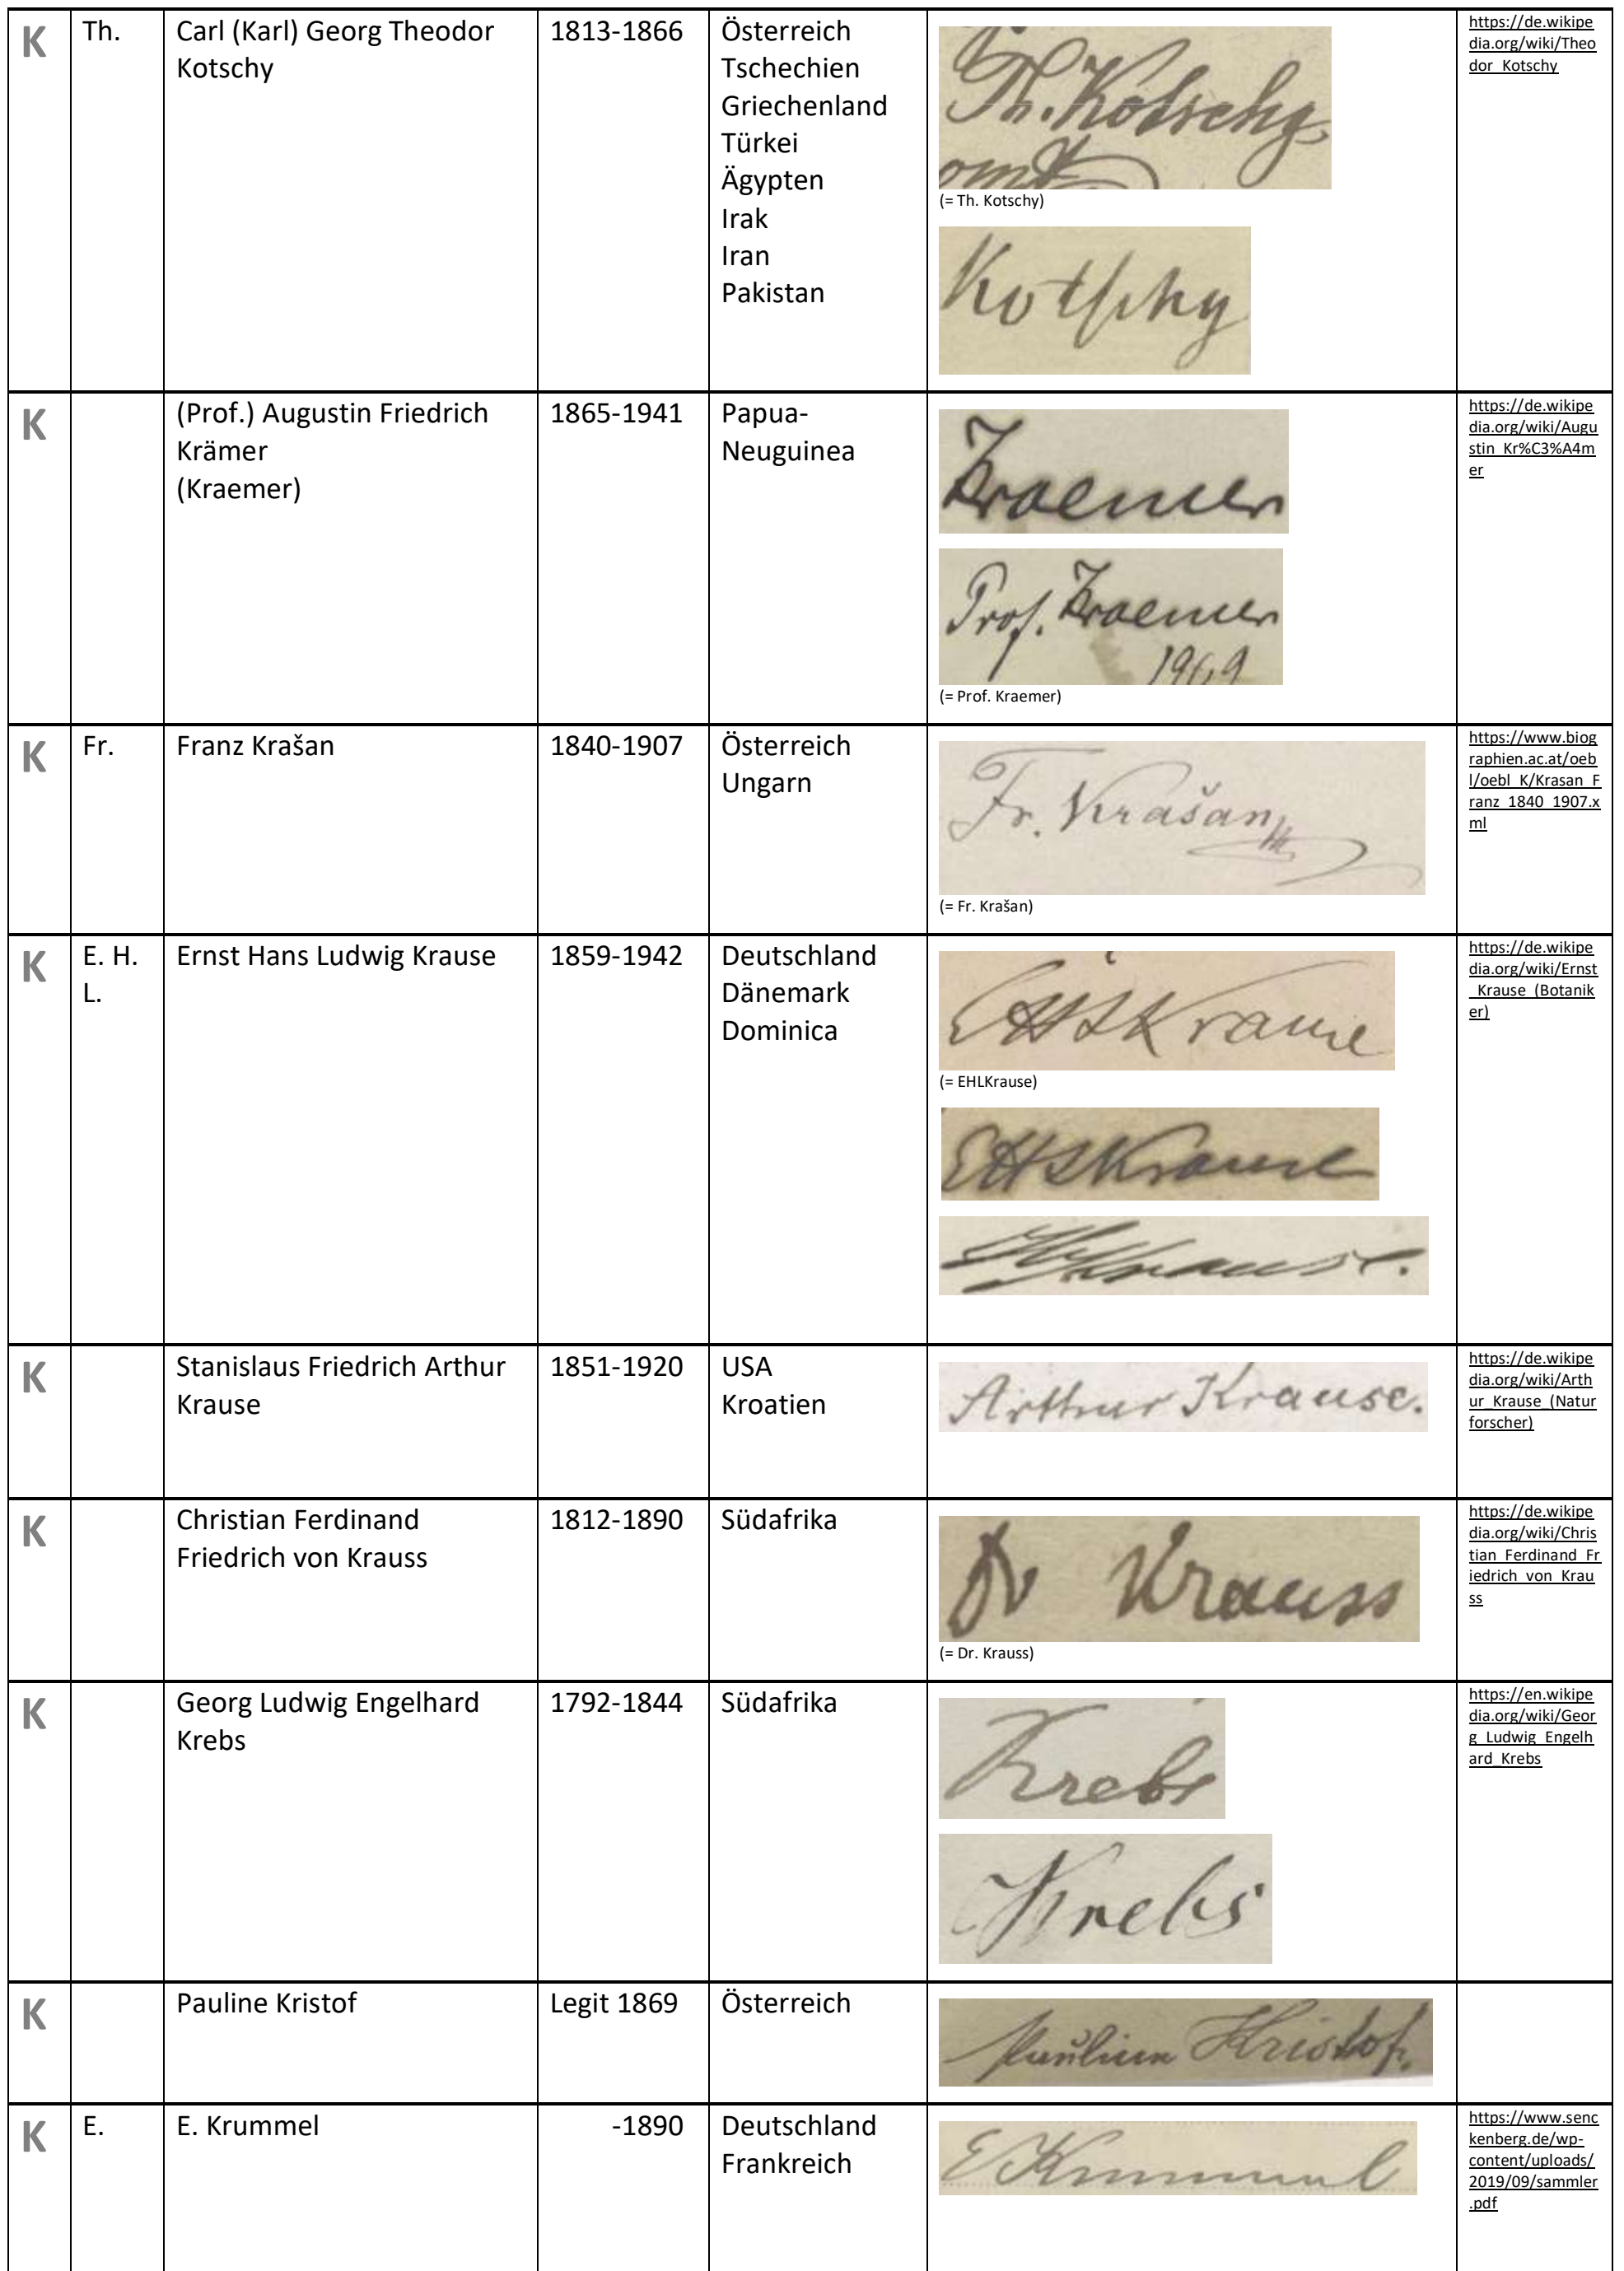 K
Th.
Carl (Karl) Georg Theodor
Kotschy
1813-1866
Österreich
Tschechien
Griechenland
Türkei
Ägypten
Irak
Iran
Pakistan
Th. Kotschy
(= Th. Kotschy)
Kotschy
https://de.wikipe
dia.org/wiki/Theo
dor_Kotschy
K
(Prof.) Augustin Friedrich
Krämer
(Kraemer)
1865-1941
Papua-
Neuguinea
Kraemer
Prof. Kraemer
1909
(= Prof. Kraemer)
https://de.wikipe
dia.org/wiki/Augu
stin_Kr%C3%A4m
er
K
Fr.
Franz Krašan
1840-1907
Österreich
Ungarn
Fr. Krašan
(= Fr. Krašan)
https://www.biog
raphien.ac.at/oeb
l/oebl_K/Krasan_F
ranz_1840_1907.x
ml
K
E. H.
L.
Ernst Hans Ludwig Krause
1859-1942
Deutschland
Dänemark
Dominica
EHLKrause
(= EHLKrause)
EHLKrause
EHLKrause.
https://de.wikipe
dia.org/wiki/Ernst
_Krause_(Botanik
er)
K
Stanislaus Friedrich Arthur
Krause
1851-1920
USA
Kroatien
Arthur Krause.
https://de.wikipe
dia.org/wiki/Arth
ur_Krause_(Natur
forscher)
K
Christian Ferdinand
Friedrich von Krauss
1812-1890
Südafrika
Dr Krauss
(= Dr. Krauss)
https://de.wikipe
dia.org/wiki/Chris
tian_Ferdinand_Fr
iedrich_von_Krau
ss
K
Georg Ludwig Engelhard
Krebs
1792-1844
Südafrika
Krebs
Krebs
https://en.wikipe
dia.org/wiki/Geor
g_Ludwig_Engelh
ard_Krebs
K
Pauline Kristof
Legit 1869
Österreich
Pauline Kristof.
K
E.
E. Krummel
-1890
Deutschland
Frankreich
E Krummel
https://www.senc
kenberg.de/wp-
content/uploads/
2019/09/sammler
.pdf